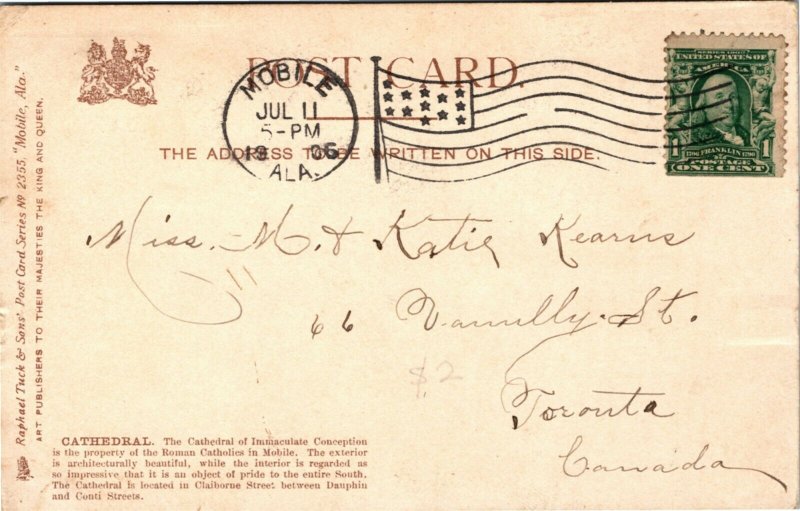 POST CARD.
MOBILE
JUL 11
5-PM
19 06
ALA.
SERIES 1902
UNITED STATES OF
AMERICA
1706 FRANKLIN 1790
1 POSTAGE 1
ONE CENT
THE ADDRESS TO BE WRITTEN ON THIS SIDE.
Miss. M. & Katie Kearns
66
St.
$2
Toronto
Canada
CATHEDRAL. The Cathedral of Immaculate Conception
is the property of the Roman Catholics in Mobile. The exterior
is architecturally beautiful, while the interior is regarded as
so impressive that it is an object of pride to the entire South.
The Cathedral is located in Claiborne Street between Dauphin
and Conti Streets.
Raphael Tuck & Sons' Post Card Series No 2355. "Mobile, Ala."
ART PUBLISHERS TO THEIR MAJESTIES THE KING AND QUEEN.